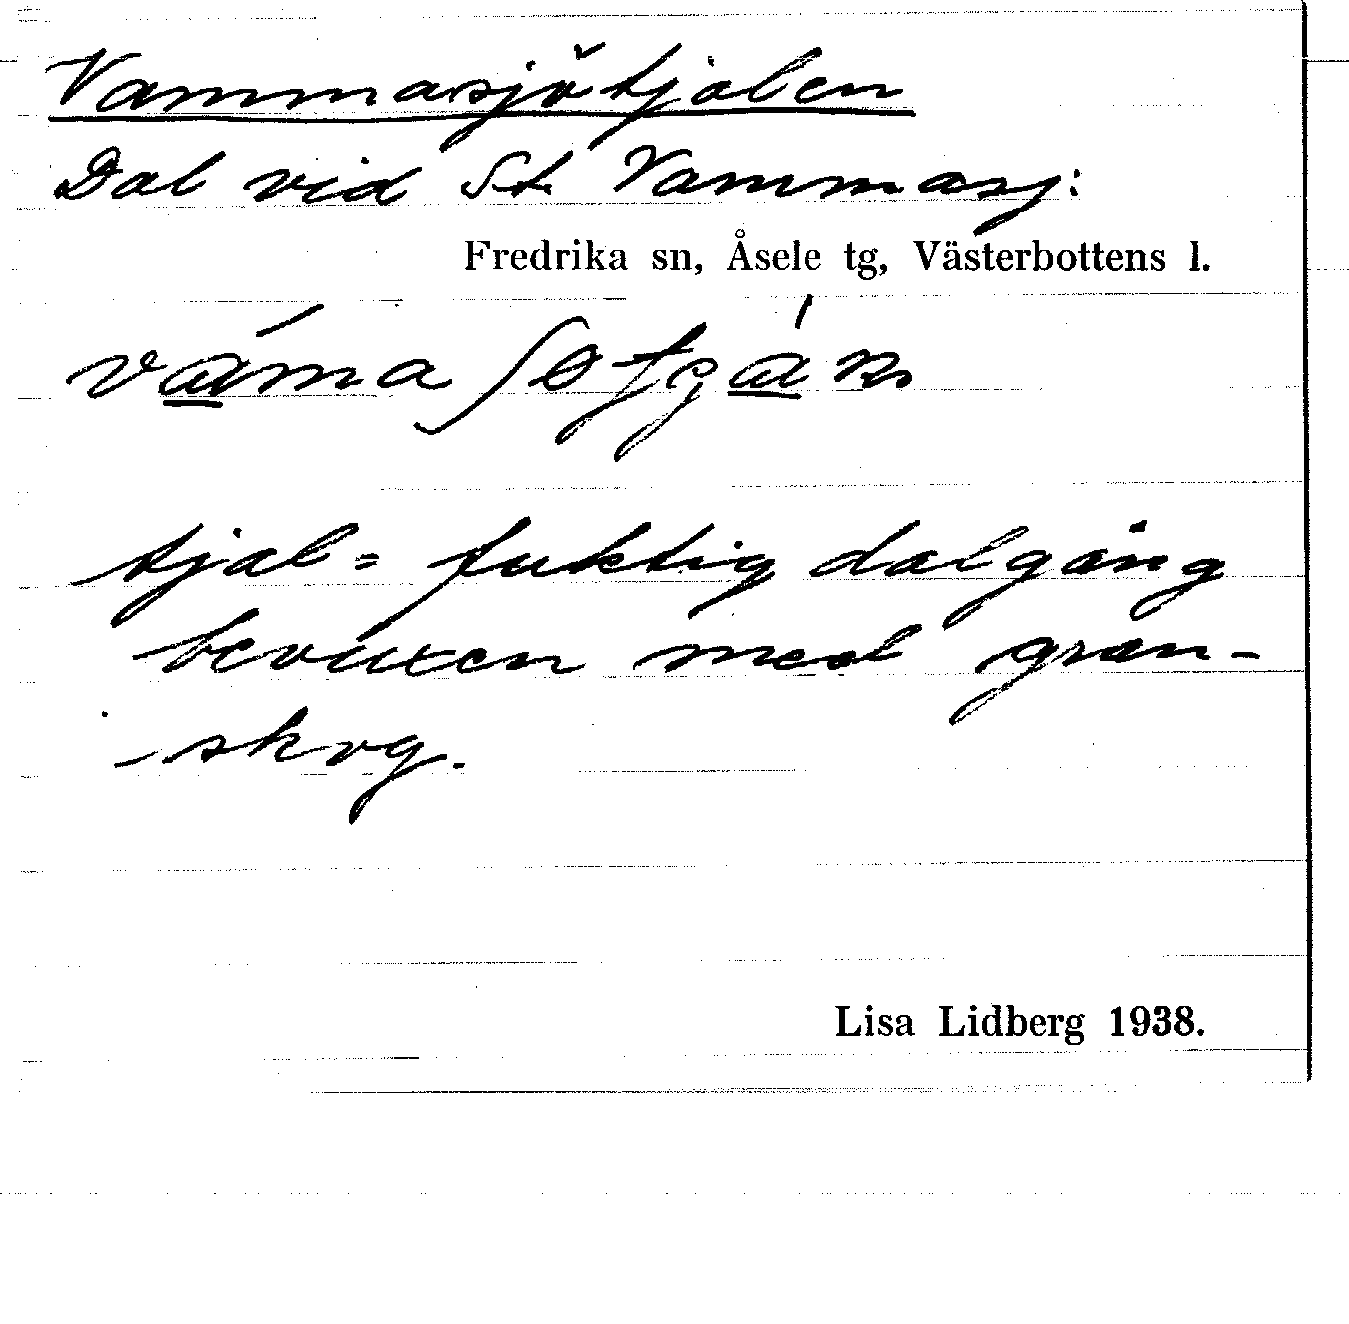 Vammasjötjalen
Dal vid St. Vammasj:
Fredrika sn, Åsele tg, Västerbottens l.
tjal = fuktig dalgång
bevuxen med gran-
skog.
Lisa Lidberg 1938.